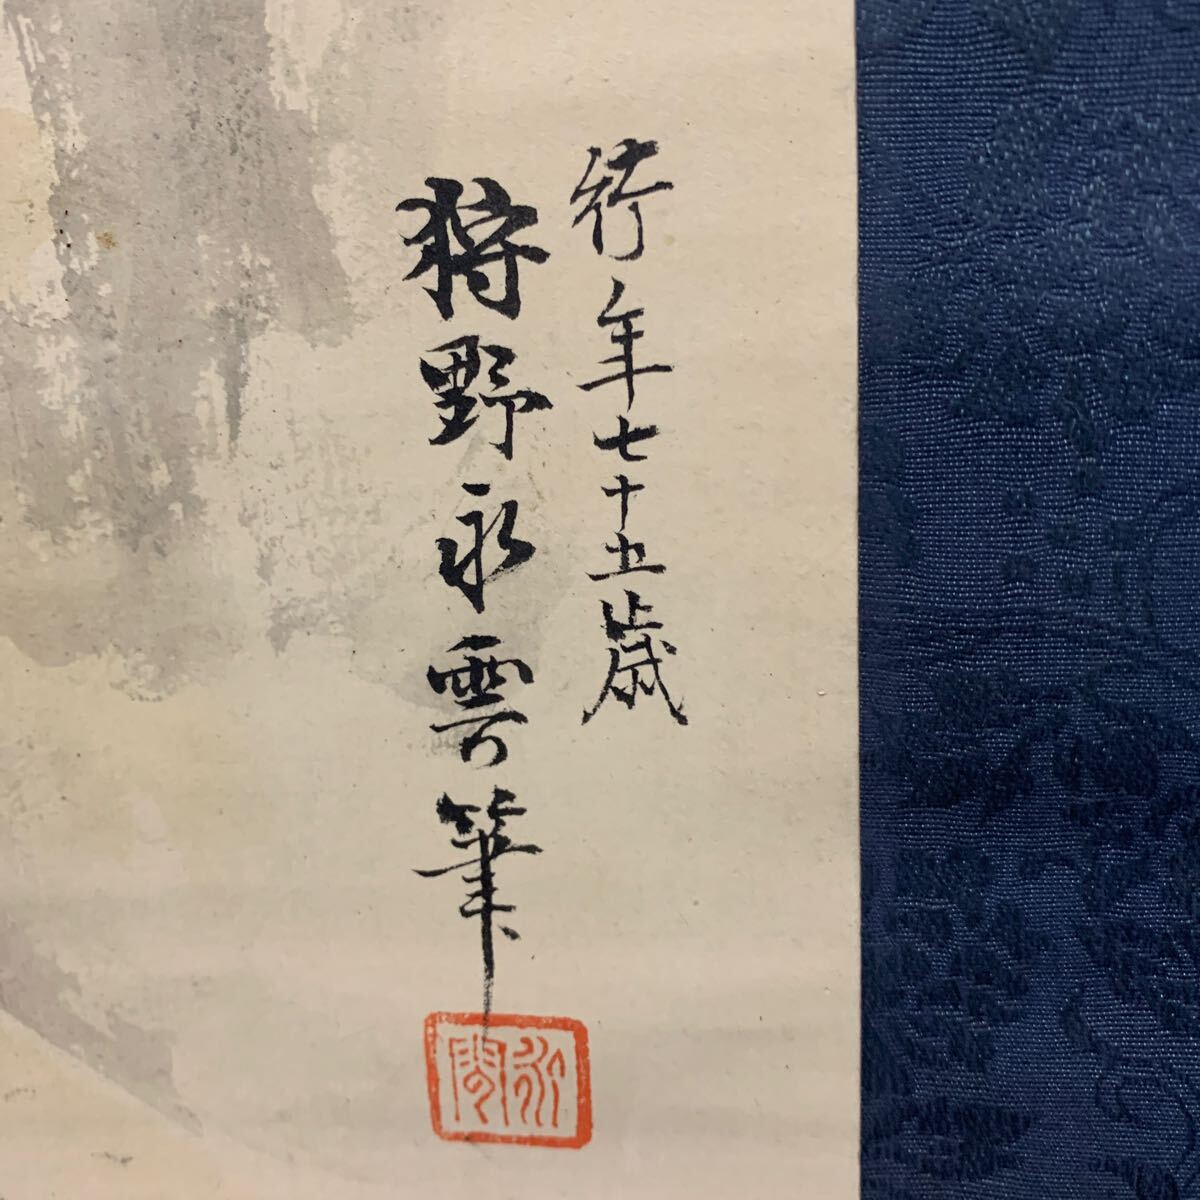 行年七十五歳
狩野永雲筆